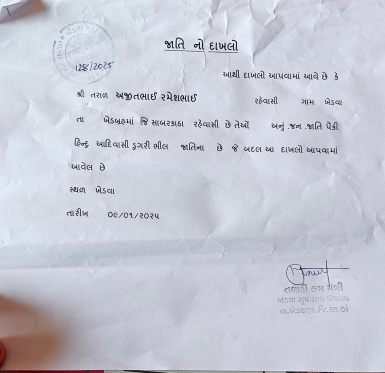 128/2025
જાતિ નો દાખલો
આથી દાખલો આપવામાં આવે છે કે
શ્રી તરાળ અજીતભાઈ રમેશભાઈ રહેવાસી ગામ ખેડવા
તા ખેડબ્રહ્મા જિ સાબરકાંઠા રહેવાસી છે તેઓ અનુ.જન.જાતિ પૈકી
હિન્દુ આદિવાસી ડુંગરી ભીલ જાતિના છે જે બદલ આ દાખલો આપવામાં
આવેલ છે
સ્થળ ખેડવા
તારીખ ૦૯/૦૧/૨૦૨૫
તલાટી કમ મંત્રી
ખેડવા